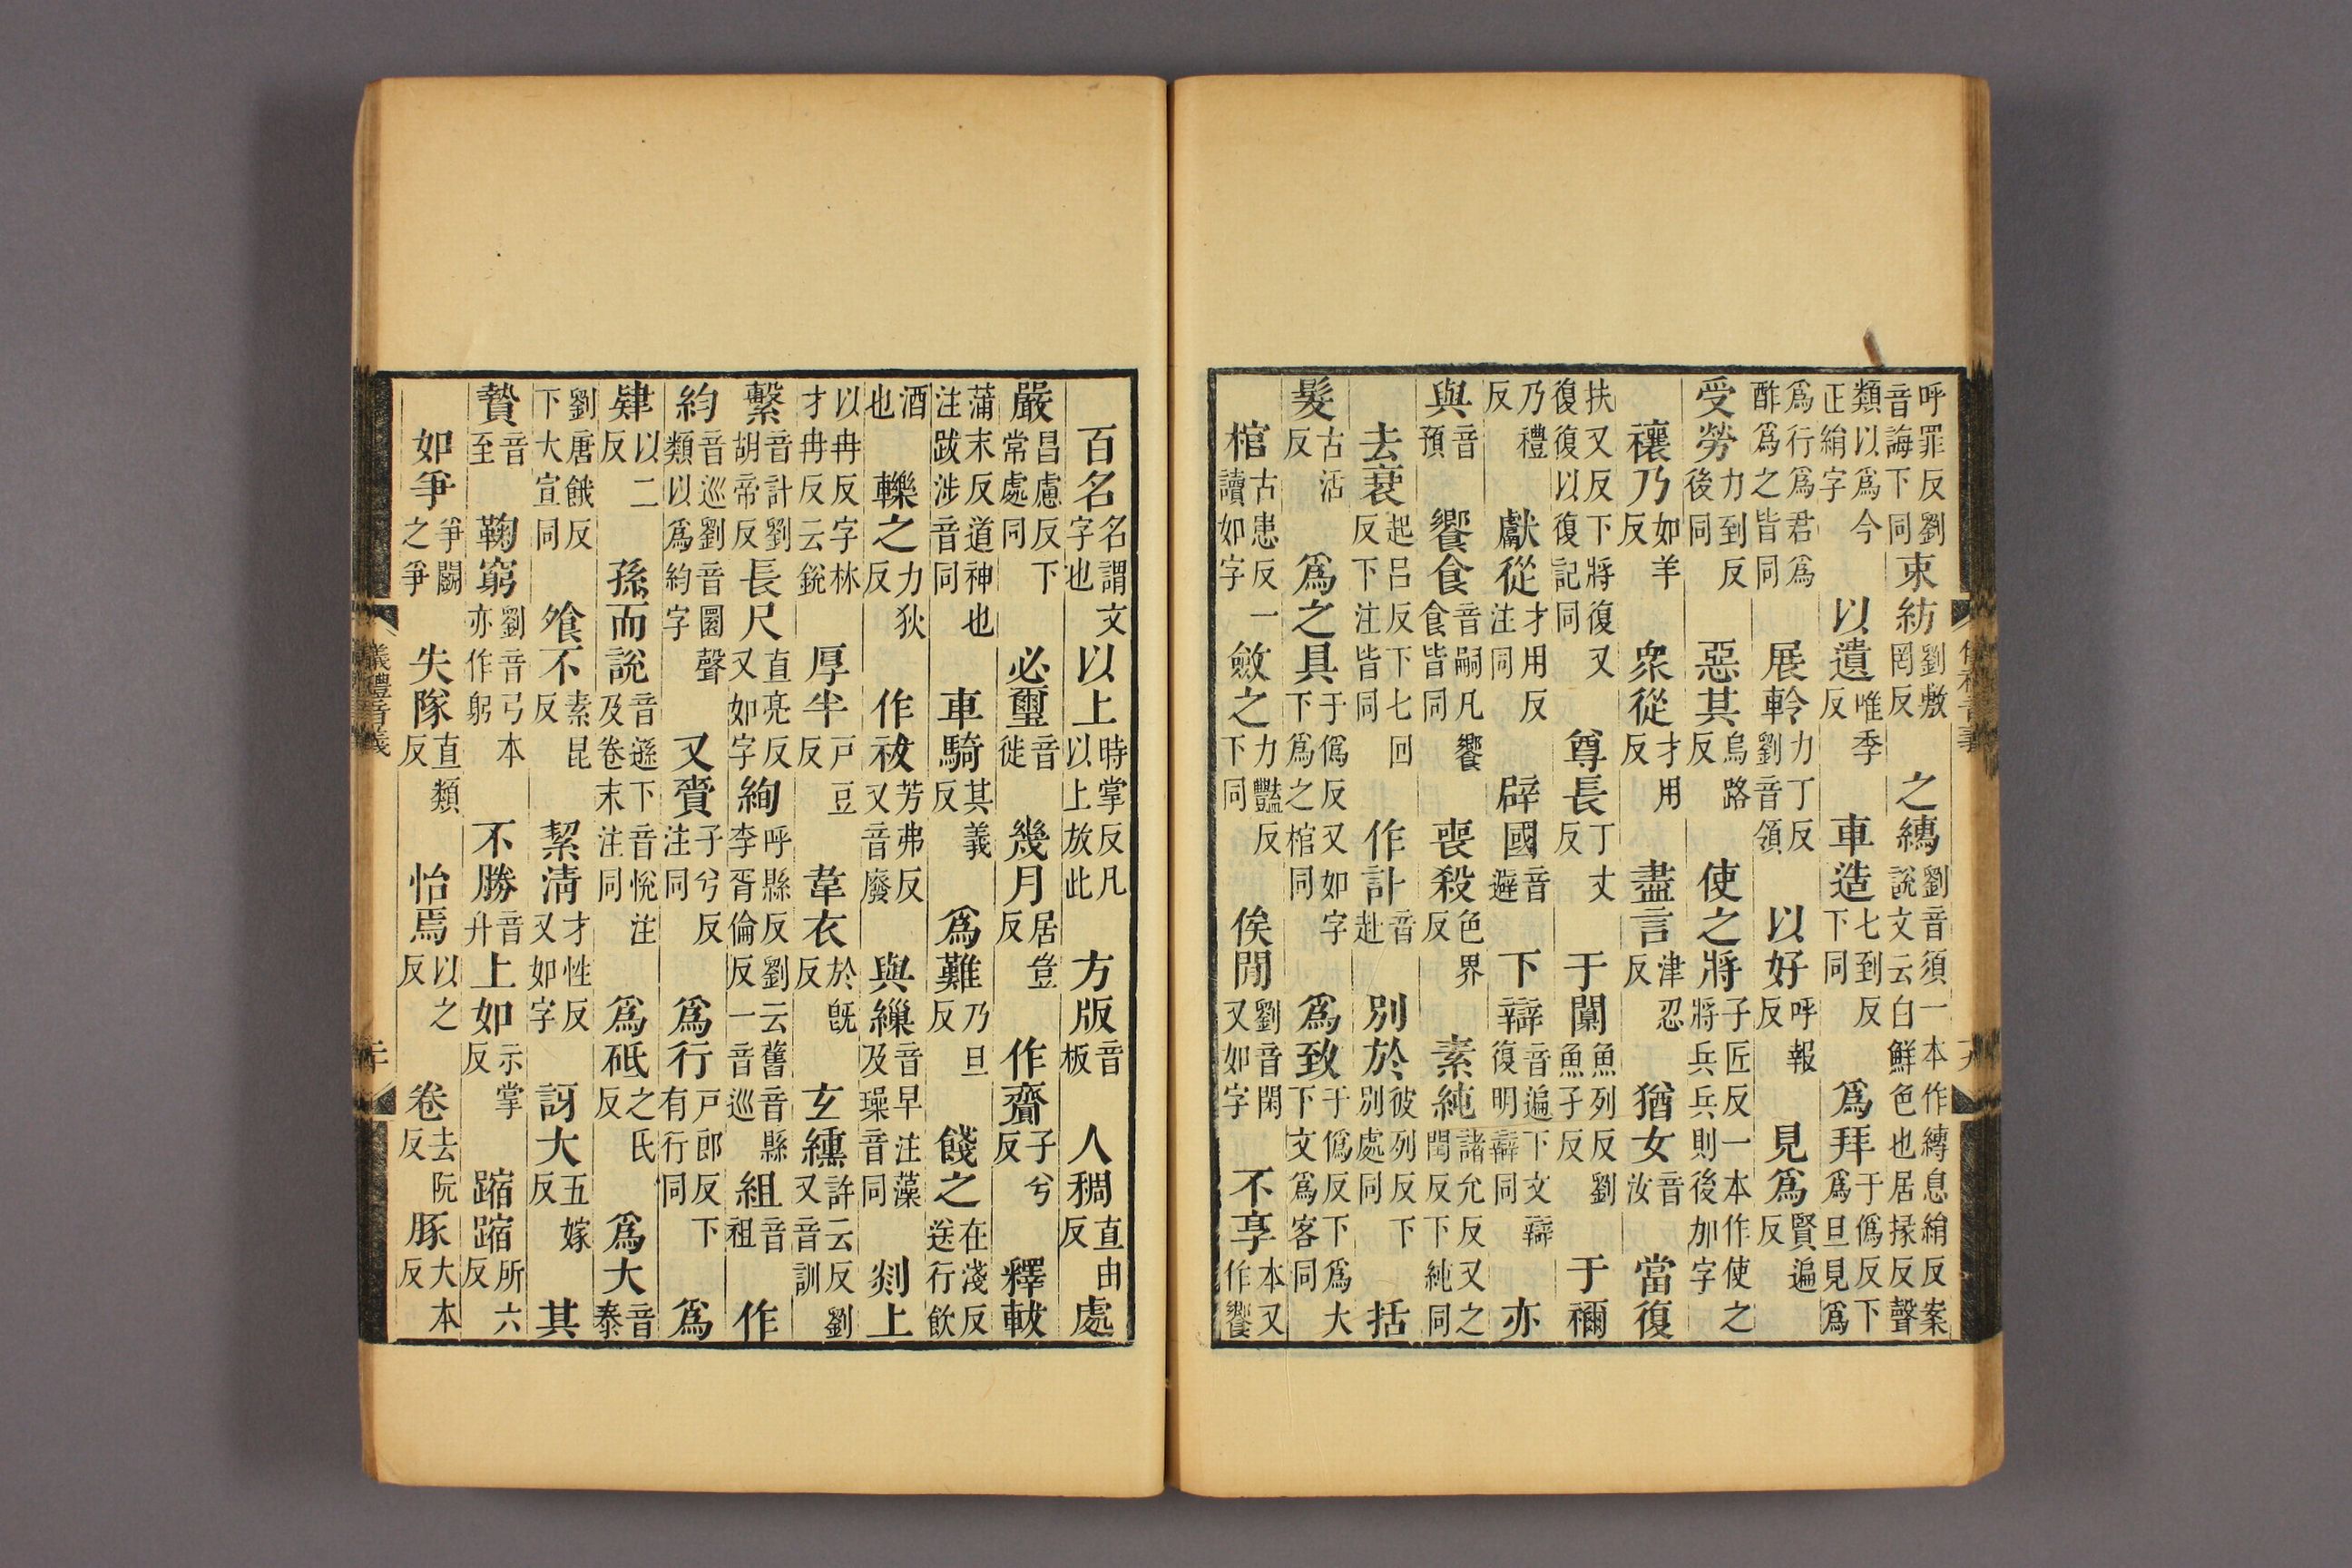 呼罪反劉音誨下同束紡劉敷罔反之縳劉音須一本作縳息絹反案說文云白鮮色也居掾反聲
類以爲今正絹字以遺唯季反車造七到反下同爲拜于僞反下爲旦見爲
爲行爲君爲酢爲之皆同展軨力丁反劉音領以好呼報反見爲賢遍反
受勞力到反後同惡其烏路反使之將子匠反一本作使之將兵兵則後加字
禳乃如羊反衆從才用反盡言津忍反猶女音汝當復
扶又反下將復又復復以復記同尊長丁丈反于闑魚列反劉魚孑反于禰
乃禮反獻從才用反注同辟國音避下辯音遍下文辯復明辯同亦
與音預饗食音嗣凡饗食皆同喪殺色界反素純諸允反又之閏反下純同
去衰起呂反下七回反下注皆同作計音赴別於彼列反下別處同括
髮古活反爲之具于僞反又如字下爲之棺同爲致于僞反下爲大下文爲客同
棺古患反一讀如字斂之力豔反下同俟閒劉音閑又如字不享本又作饗
百名名謂文字也以上時掌反凡以上放此方版音板人稠直由反處
嚴昌慮反下常處同必璽音徙幾月居豈反作齎子兮反釋軷
蒲末反道神也注跋涉音同車騎其義反爲難乃旦反餞之在淺反送行飲
酒也轢之力狄反作祓芳弗反又音廢與繅音早注藻及璪音同剡上
以冉反字林才冉反云銳厚半戶豆反韋衣於旣反玄纁許云反劉又音訓
繫音計劉胡帝反長尺直亮反又如字絢呼縣反劉云舊音縣李胥倫反一音巡組音祖作
約音巡劉音圜聲類以爲約字又齎子兮反注同爲行戶郎反下有行同爲
肄以二反孫而說音遜下音悅注及卷末注同爲砥之氏反爲大音泰
劉唐餓反下大宣同飧不素昆反絜清才性反又如字訝大五嫁反其
贄音至鞠窮劉音弓本亦作躬不勝音升上如示掌反蹜蹜所六反
如爭爭鬭之爭失隊直類反怡焉以之反卷去阮反豚大本反
儀禮音義